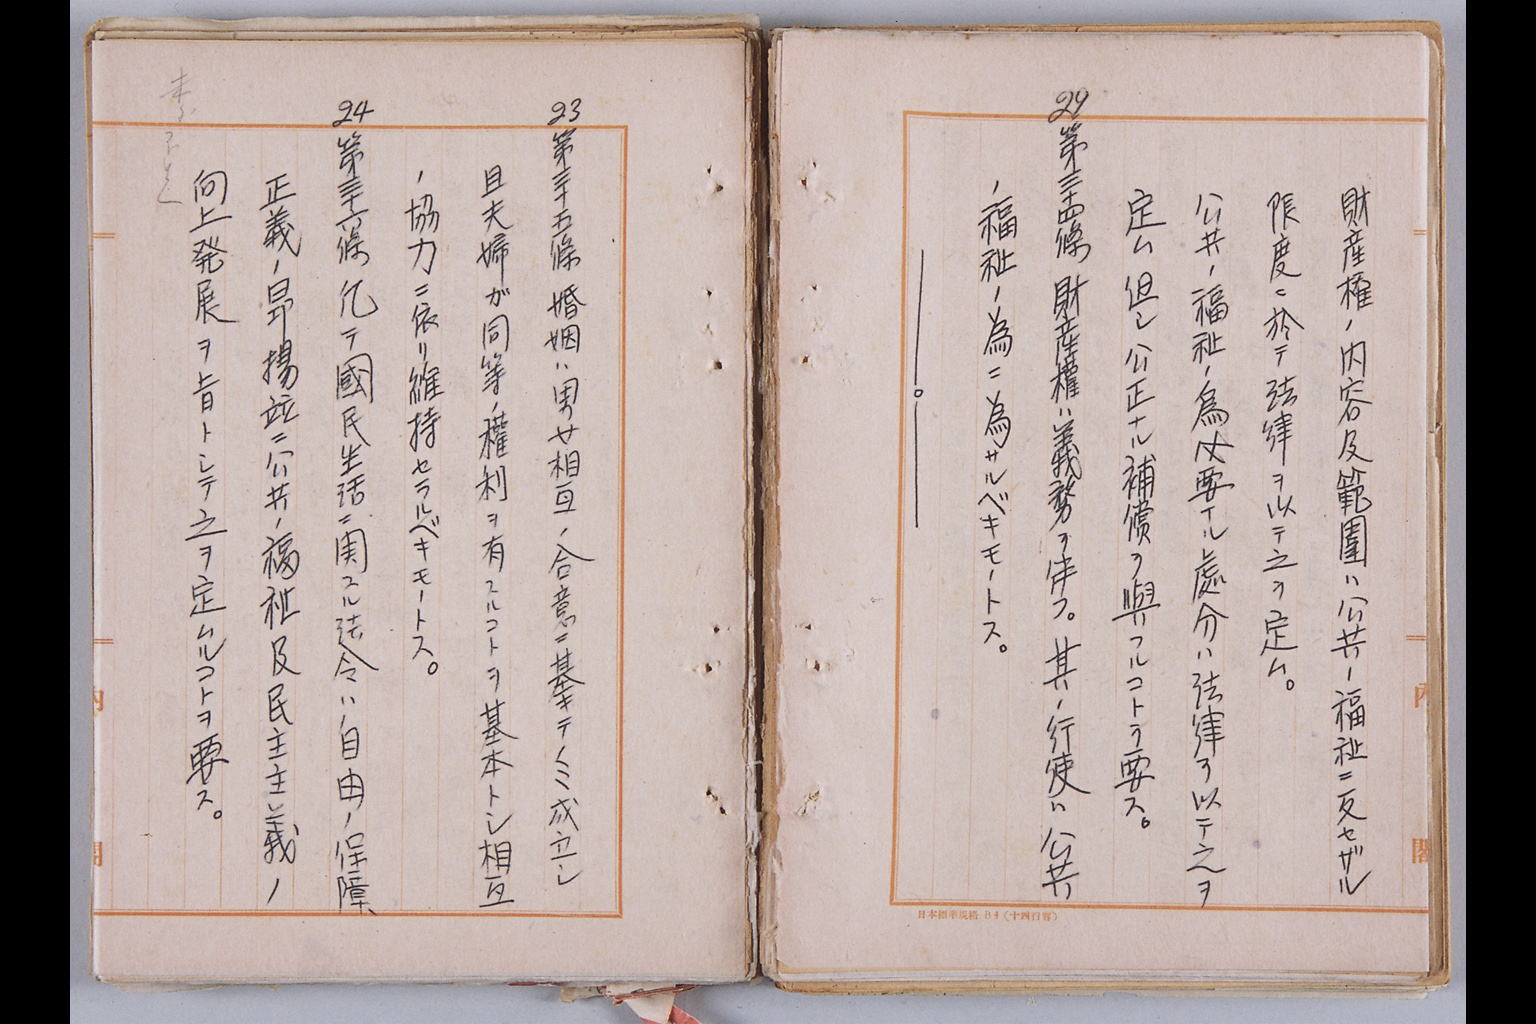 財産権ノ内容及範圍ハ公共ノ福祉ニ反セザル
限度ニ於テ法律ヲ以テ之ヲ定ム。
公共ノ福祉ノ為必要ナル處分ハ法律ヲ以テ之ヲ
定ム但シ公正ナル補償ヲ與フルコトヲ要ス。
29 第三十四條 財産權ハ義務ヲ伴フ。其ノ行使ハ公共
ノ福祉ノ為ニ為サルベキモノトス。
日本標準規格 B4(十四行罫)
23 第三十五條 婚姻ハ男女相互ノ合意ニ基キテノミ成立シ
且夫婦が同等ノ權利ヲ有スルコトヲ基本トシ相互
ノ協力ニ依リ維持セラルベキモノトス。
24 第三十六條 凡テ國民生活ニ関スル法令ハ自由ノ保障
正義ノ昂揚竝ニ公共ノ福祉及民主主義ノ
向上発展ヲ旨トシテ之ヲ定ムルコトヲ要ス。
内閣